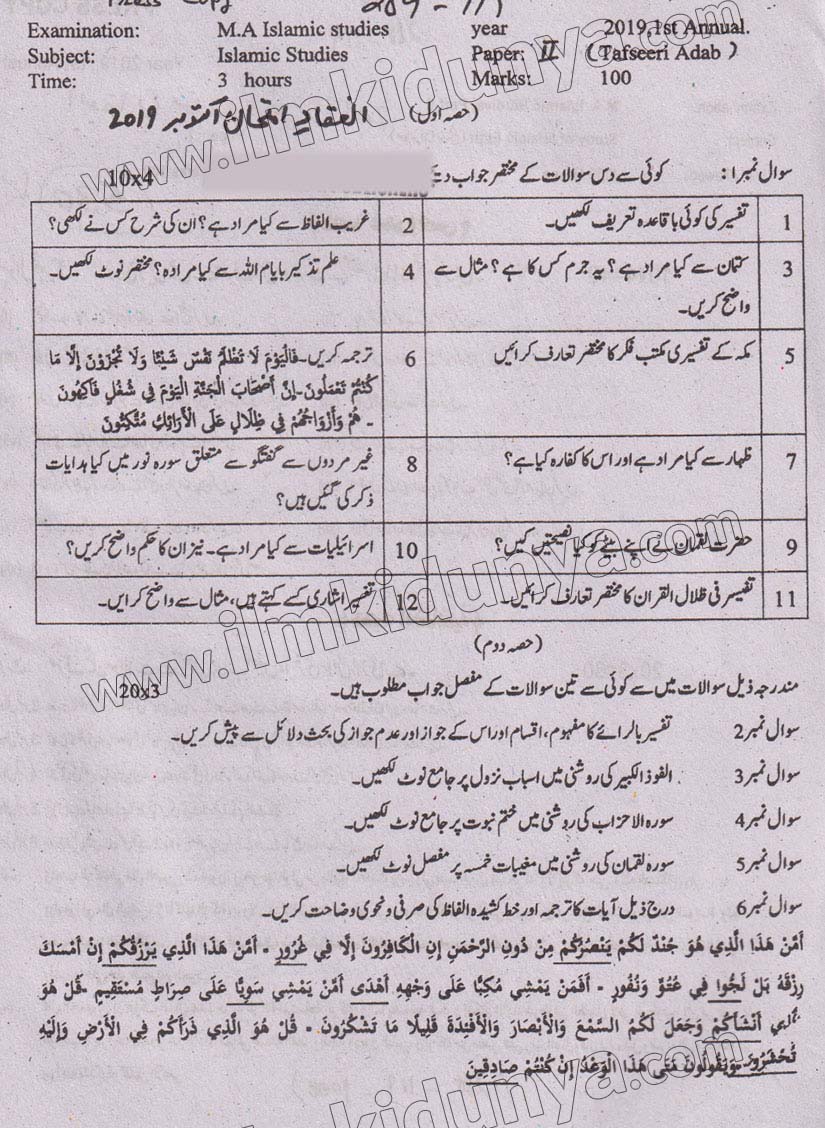 Press Copy
Examination: M.A Islamic studies year 2019,1st Annual.
Subject: Islamic Studies Paper: II ( Tafseeri Adab )
Time: 3 hours Marks: 100
(حصہ اول) انعقاد امتحان اکتوبر 2019
سوال نمبر 1: کوئی سے دس سوالات کے مختصر جواب 10x4
1 تفسیر کی کوئی باقاعدہ تعریف لکھیں۔
2 غریب الفاظ سے کیا مراد ہے؟ ان کی شرح کس نے لکھی؟
3 کتمان سے کیا مراد ہے؟ یہ جرم کس کا ہے؟ مثال سے
واضح کریں۔
4 علم تذکیر بایام اللہ سے کیا مرادہ؟ مختصر نوٹ لکھیں۔
5 مکہ کے تفسیری مکتب فکر کا مختصر تعارف کرائیں
6 ترجمہ کریں۔ فَالْيَوْمَ لَا تُظْلَمُ نَفْسٌ شَيْئًا وَلَا تُجْزَوْنَ إِلَّا مَا
كُنْتُمْ تَعْمَلُونَ۔ إِنَّ أَصْحَابَ الْجَنَّةِ الْيَوْمَ فِي شُغُلٍ فَاكِهُونَ
۔ هُمْ وَأَزْوَاجُهُمْ فِي ظِلَالٍ عَلَى الْأَرَائِكِ مُتَّكِئُونَ
7 ظہار سے کیا مراد ہے اور اس کا کفارہ کیا ہے؟
8 غیر مردوں سے گفتگو سے متعلق سورہ نور میں کیا ہدایات
ذکر کی گئیں ہیں؟
9 حضرت لقمان نے اپنے بیٹے کو کیا نصیحتیں کیں؟
10 اسرائیلیات سے کیا مراد ہے۔ نیز ان کا حکم واضح کریں؟
11 تفیسر فی ظلال القران کا مختصر تعارف کرائیں۔
12 تفسیر اشاری کسے کہتے ہیں، مثال سے واضح کرایں۔
(حصہ دوم)
مندرجہ ذیل سوالات میں سے کوئی سے تین سوالات کے مفصل جواب مطلوب ہیں۔ 20x3
سوال نمبر 2 تفسیر بالرائے کا مفہوم، اقسام اور اس کے جواز اور عدم جواز کی بحث دلائل سے پیش کریں۔
سوال نمبر 3 الفوذ الکبیر کی روشنی میں اسباب نزول پر جامع نوٹ لکھیں۔
سوال نمبر 4 سورہ الاحزاب کی روشنی میں ختم نبوت پر جامع نوٹ لکھیں۔
سوال نمبر 5 سورہ لقمان کی روشنی میں مغیبات خمسہ پر مفصل نوٹ لکھیں۔
سوال نمبر 6 درج ذیل آیات کا ترجمہ اور خط کشیدہ الفاظ کی صرفی و نحوی وضاحت کریں۔
أَمَّنْ هَذَا الَّذِي هُوَ جُنْدٌ لَكُمْ يَنْصُرُكُمْ مِنْ دُونِ الرَّحْمَنِ إِنِ الْكَافِرُونَ إِلَّا فِي غُرُورٍ ۔ أَمَّنْ هَذَا الَّذِي يَرْزُقُكُمْ إِنْ أَمْسَكَ
رِزْقَهُ بَلْ لَجُّوا فِي عُتُوٍّ وَنُفُورٍ ۔ أَفَمَنْ يَمْشِي مُكِبًّا عَلَى وَجْهِهِ أَهْدَى أَمَّنْ يَمْشِي سَوِيًّا عَلَى صِرَاطٍ مُسْتَقِيمٍ ۔ قُلْ هُوَ
أَنْشَأَكُمْ وَجَعَلَ لَكُمُ السَّمْعَ وَالْأَبْصَارَ وَالْأَفْئِدَةَ قَلِيلًا مَا تَشْكُرُونَ ۔ قُلْ هُوَ الَّذِي ذَرَأَكُمْ فِي الْأَرْضِ وَإِلَيْهِ
تُحْشَرُونَ ۔ وَيَقُولُونَ مَتَى هَذَا الْوَعْدُ إِنْ كُنْتُمْ صَادِقِينَ
www.ilmkidunya.com
www.ilmkidunya.com
www.ilmkidunya.com
ilmkidunya.com